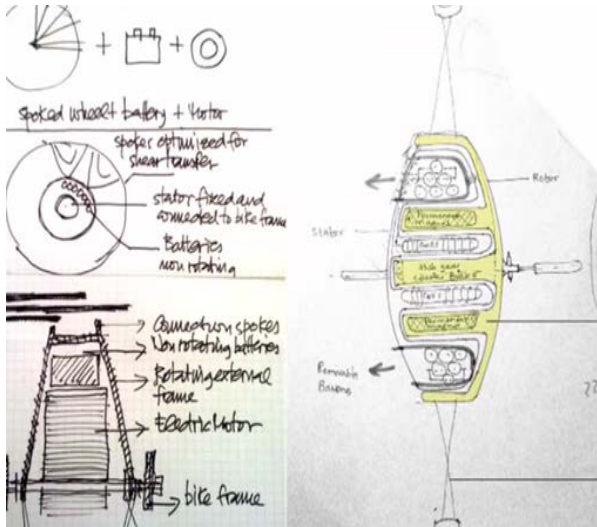 spoked wheel + battery + motor
spokes optimized for
shear transfer
stator fixed and
connected to bike frame
Batteries
non rotating
Connection spokes
Non rotating batteries
Rotating external
frame
Electric Motor
bike frame
Rotor
Stator
Permanent
magnet
Coil
Coil
Permanent
magnet
Removable